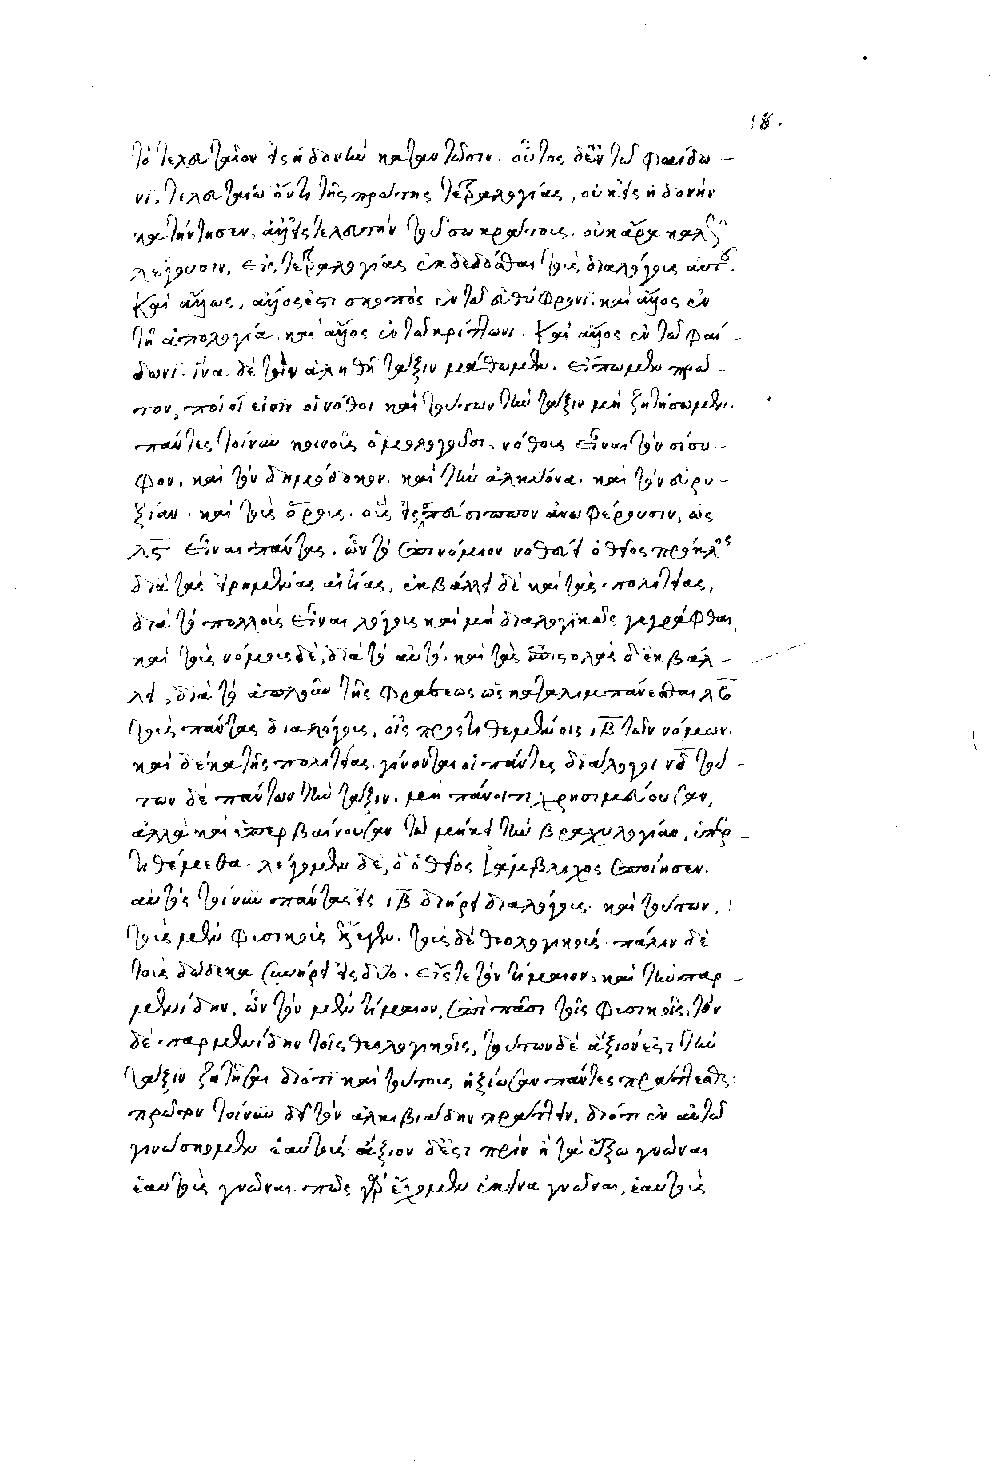 18.
τὸ τελευταῖον εἰς ἡδονὴν καταντῶσιν. οὗτος δὲ ἐν τῶ φαίδω-
νι, τελευταίω ὄντι τῆς πρώτης τετραλογίας, οὐκ εἰς ἡδονὴν
κατήντησεν, ἀλλ' εἰς τελευτὴν τοῦ σωκράτους. οὐκ ἄρα καλῶς
λέγουσιν, ἐν τετραλογίαις ἐκδεδόσθαι τοὺς διαλόγους αὐτοῦ.
καὶ ἄλλως, ἄλλος ἐστὶ σκοπὸς ἐν τῶ εὐθύφρονι. καὶ ἄλλος ἐν
τῆ ἀπολογία. καὶ ἄλλος ἐν τῶ κρίτωνι. καὶ ἄλλος ἐν τῶ φαί-
δωνι. ἵνα δὲ τὴν ἀληθῆ τάξιν μάθωμεν. εἴπωμεν πρῶ-
τον, ποῖοί εἰσιν οἱ νόθοι καὶ τούτων τὴν τάξιν μὴ ζητήσωμεν.
πάντες τοίνυν κοινῶς ὁμολογοῦσι, νόθους εἶναι τὸν σίσυ-
φον, καὶ τὸν δημόδοκον. καὶ τὴν ἀλκυόνα. καὶ τὸν ἐρυ-
ξίαν. καὶ τοὺς ὅρους. οὓς εἰς σπεύσιππον ἀναφέρουσιν, ὡς
λϛ εἶναι πάντας. ὧν τὸ ἐπινόμιον νοθεύει ὁ θεῖος πρόκλος
διὰ τὰς εἰρημένας αἰτίας, ἐκβάλλει δὲ καὶ τὰς πολιτείας,
διὰ τὸ πολλοὺς εἶναι λόγους καὶ μὴ διαλογικῶς γεγράφθαι,
καὶ τοὺς νόμους δὲ, διὰ τὸ αὐτό. καὶ τὰς ἐπιστολὰς δὲ ἐκβάλ-
λει, διὰ τὸ ἁπλοῦν τῆς φράσεως ὡς καταλιμπάνεσθαι λβ
τοὺς πάντας διαλόγους, οἷς προστιθεμένοις ιβ τῶν νόμων.
καὶ δέκα τῆς πολιτείας. γίνονται οἱ πάντες διάλογοι νδ τού-
των δὲ πάντων τὴν τάξιν. μὴ πάνυ τι χρησιμεύουσαν,
ἀλλὰ καὶ ὑπερβαίνουσαν τῶ μήκει τὴν βραχυλογίαν, ὑπερ-
τιθέμεθα. λέγομεν δὲ, ὃ ὁ θεῖος ἰάμβλιχος ἐποίησεν.
αὐτὸς τοίνυν πάντας εἰς ιβ διήρει διαλόγους. καὶ τούτων,
τοὺς μὲν φυσικοὺς ἔλεγεν. τοὺς δὲ θεολογικούς. πάλιν δὲ
τοὺς δώδεκα συνήρει εἰς δύο. εἴς τε τὸν τίμαιον, καὶ τὸν παρ-
μενίδην, ὧν τὸν μὲν τίμαιον, ἐπὶ πᾶσι τοῖς φυσικοῖς, τὸν
δὲ παρμενίδην τοῖς θεολογικοῖς, τούτων δὲ ἄξιόν ἐστι τὴν
τάξιν ζητῆσαι διότι καὶ τούτοις ἠξίωσαν πάντες πράττεσθαι.
πρῶτον τοίνυν δεῖ τὸν ἀλκιβιάδην πράττειν, διότι ἐν αὐτῶ
γινώσκομεν ἑαυτοὺς ἄξιον δέ ἐστι πρὶν ἢ τὰ ἔξω γνῶναι
ἑαυτοὺς γνῶναι. πῶς γὰρ ἔχομεν ἐκεῖνα γνῶναι, ἑαυτοὺς